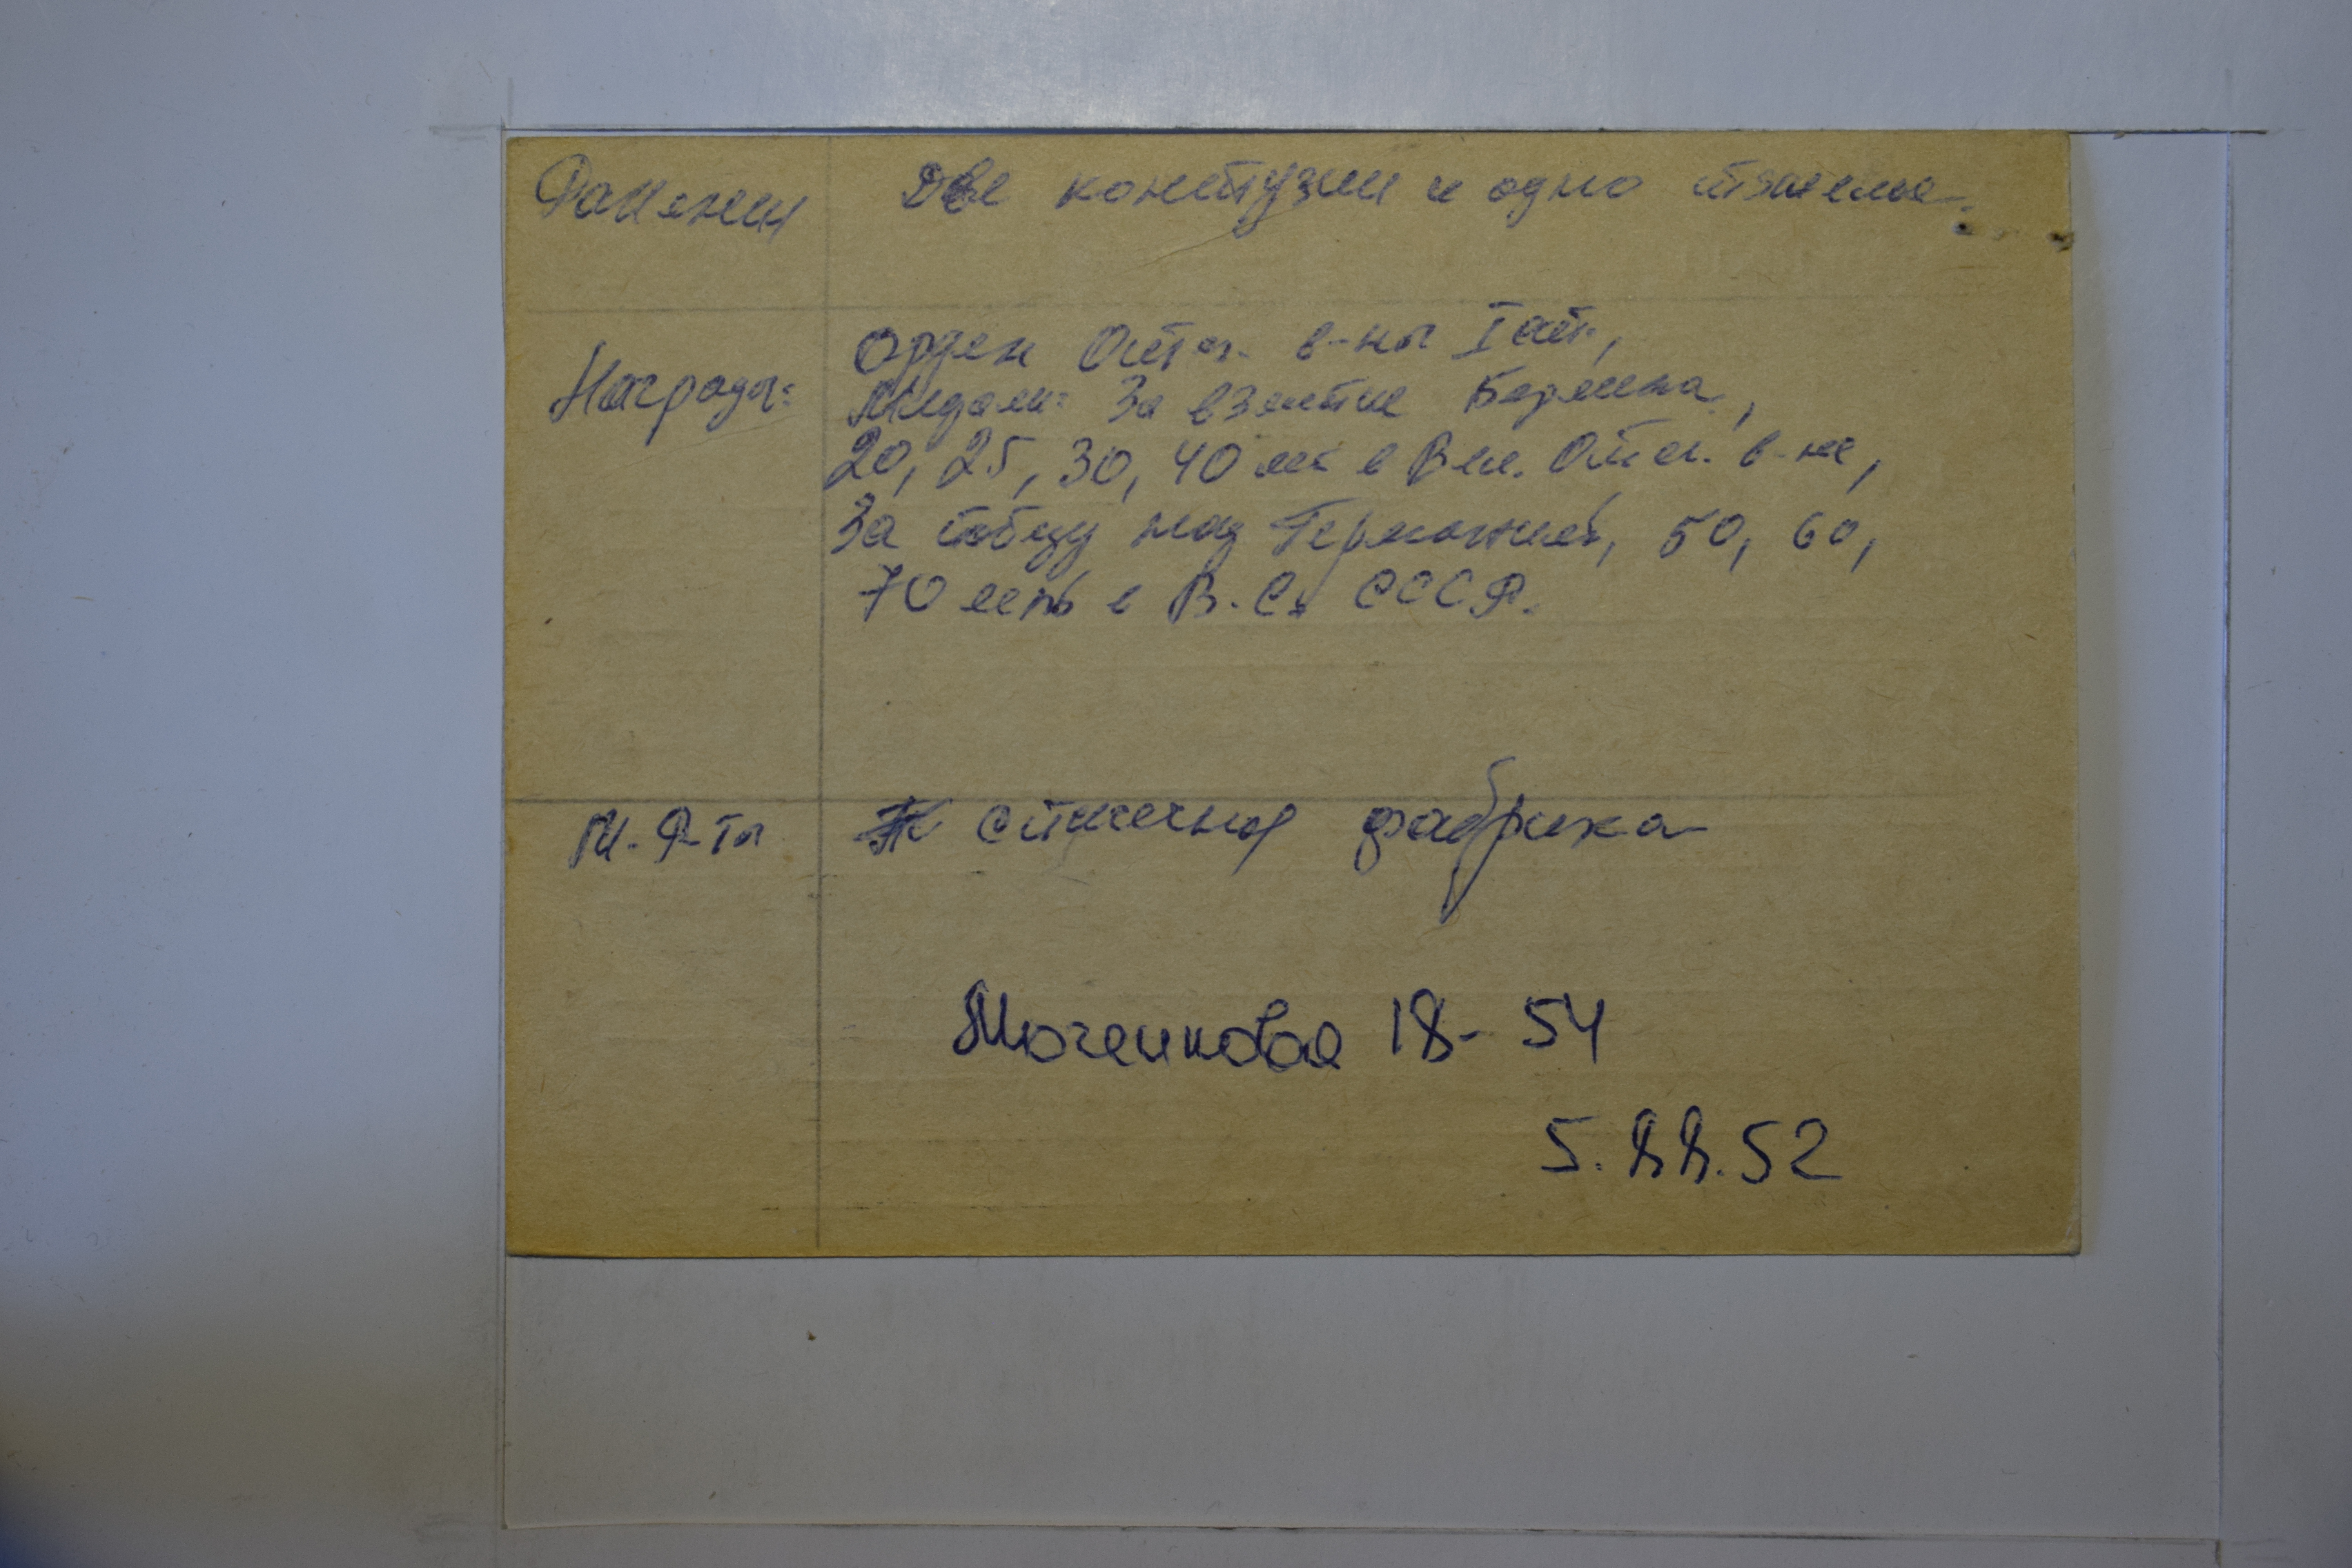 Ранения Две контузии и одно тяжелое.
Орден Отеч. в-ны I ст.,
Награды: Медали: За взятие Берлина,
20, 25, 30, 40 лет в Вел. Отеч. в-не,
За победу над Германией, 50, 60,
70 лет в В. С. СССР.
М. Р-ты спичечная фабрика
18-54
5. 88. 52